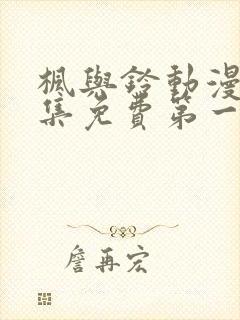 楓與鈴動漫
集免費第一
詹再宏